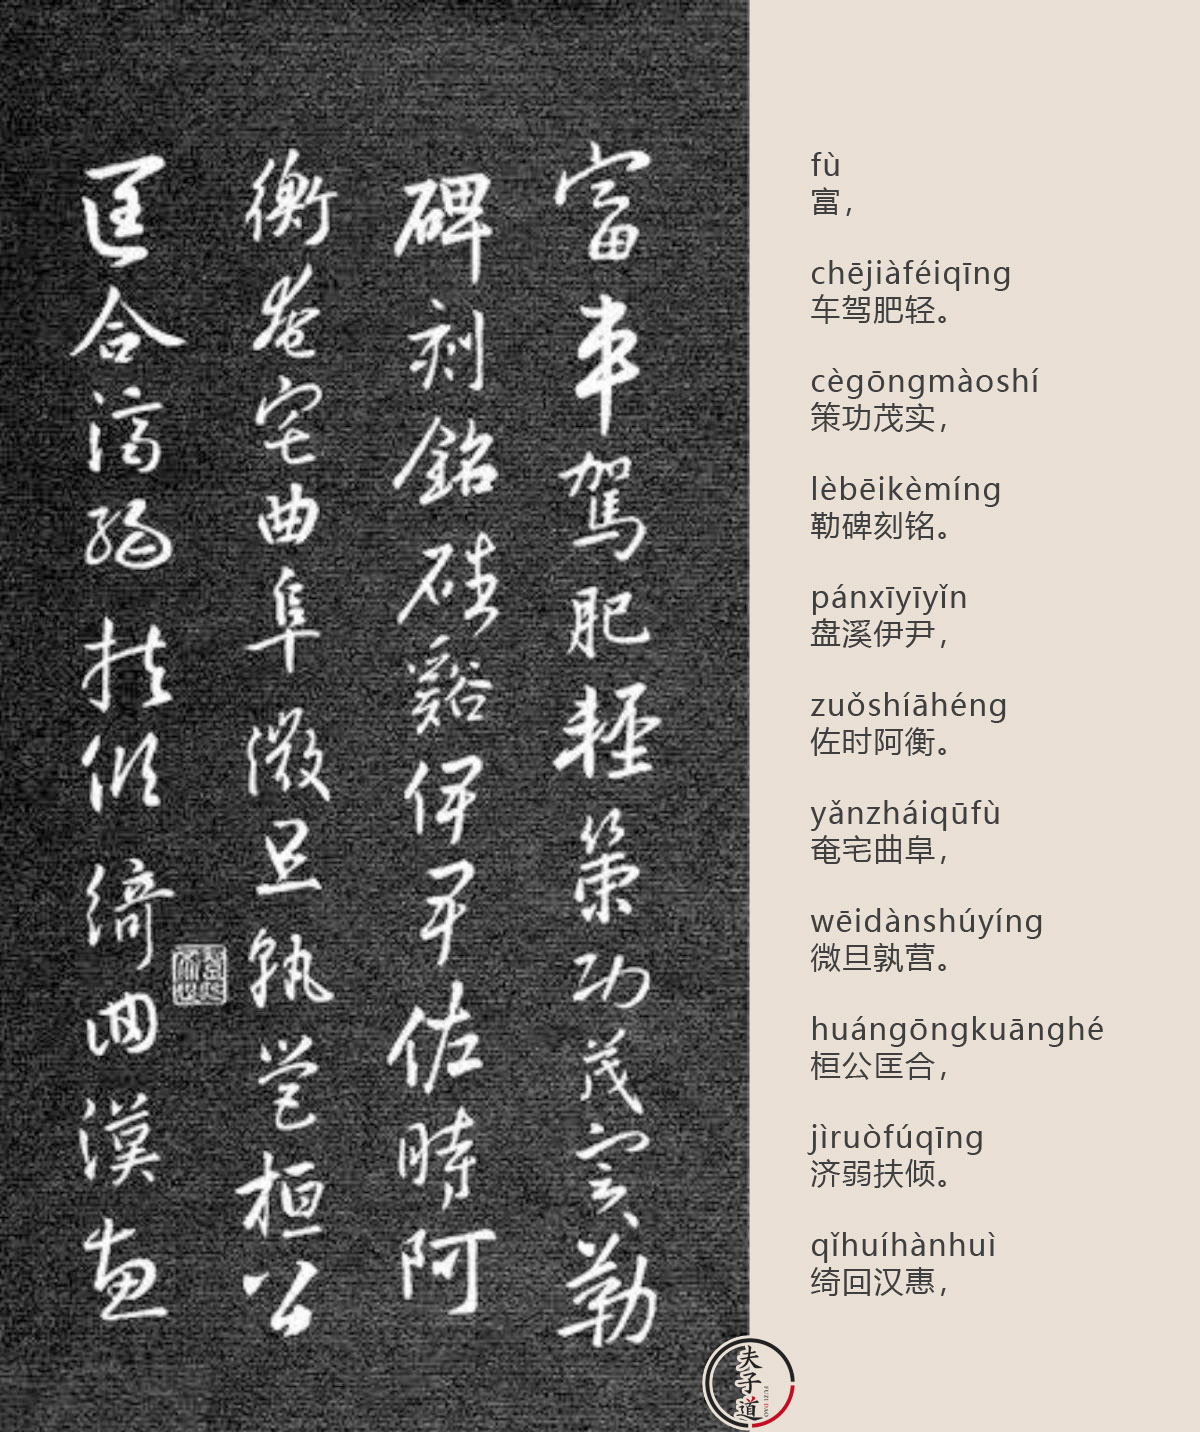 富車駕肥輕策功茂實勒
碑刻銘磻谿伊尹佐時阿
衡奄宅曲阜微旦孰營桓公
匡合濟弱扶傾綺回漢惠
fù
富，
chējiàféiqīng
车驾肥轻。
cègōngmàoshí
策功茂实，
lèbēikèmíng
勒碑刻铭。
pánxīyīyǐn
盘溪伊尹，
zuǒshíāhéng
佐时阿衡。
yǎnzháiqūfù
奄宅曲阜，
wēidànshúyíng
微旦孰营。
huángōngkuānghé
桓公匡合，
jìruòfúqīng
济弱扶倾。
qǐhuíhànhuì
绮回汉惠，
夫子道
FUZI DAO